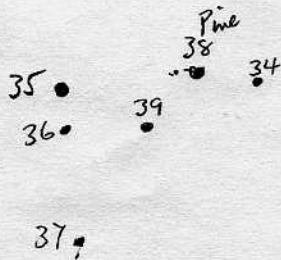 Pine
38
34
35
39
36
37